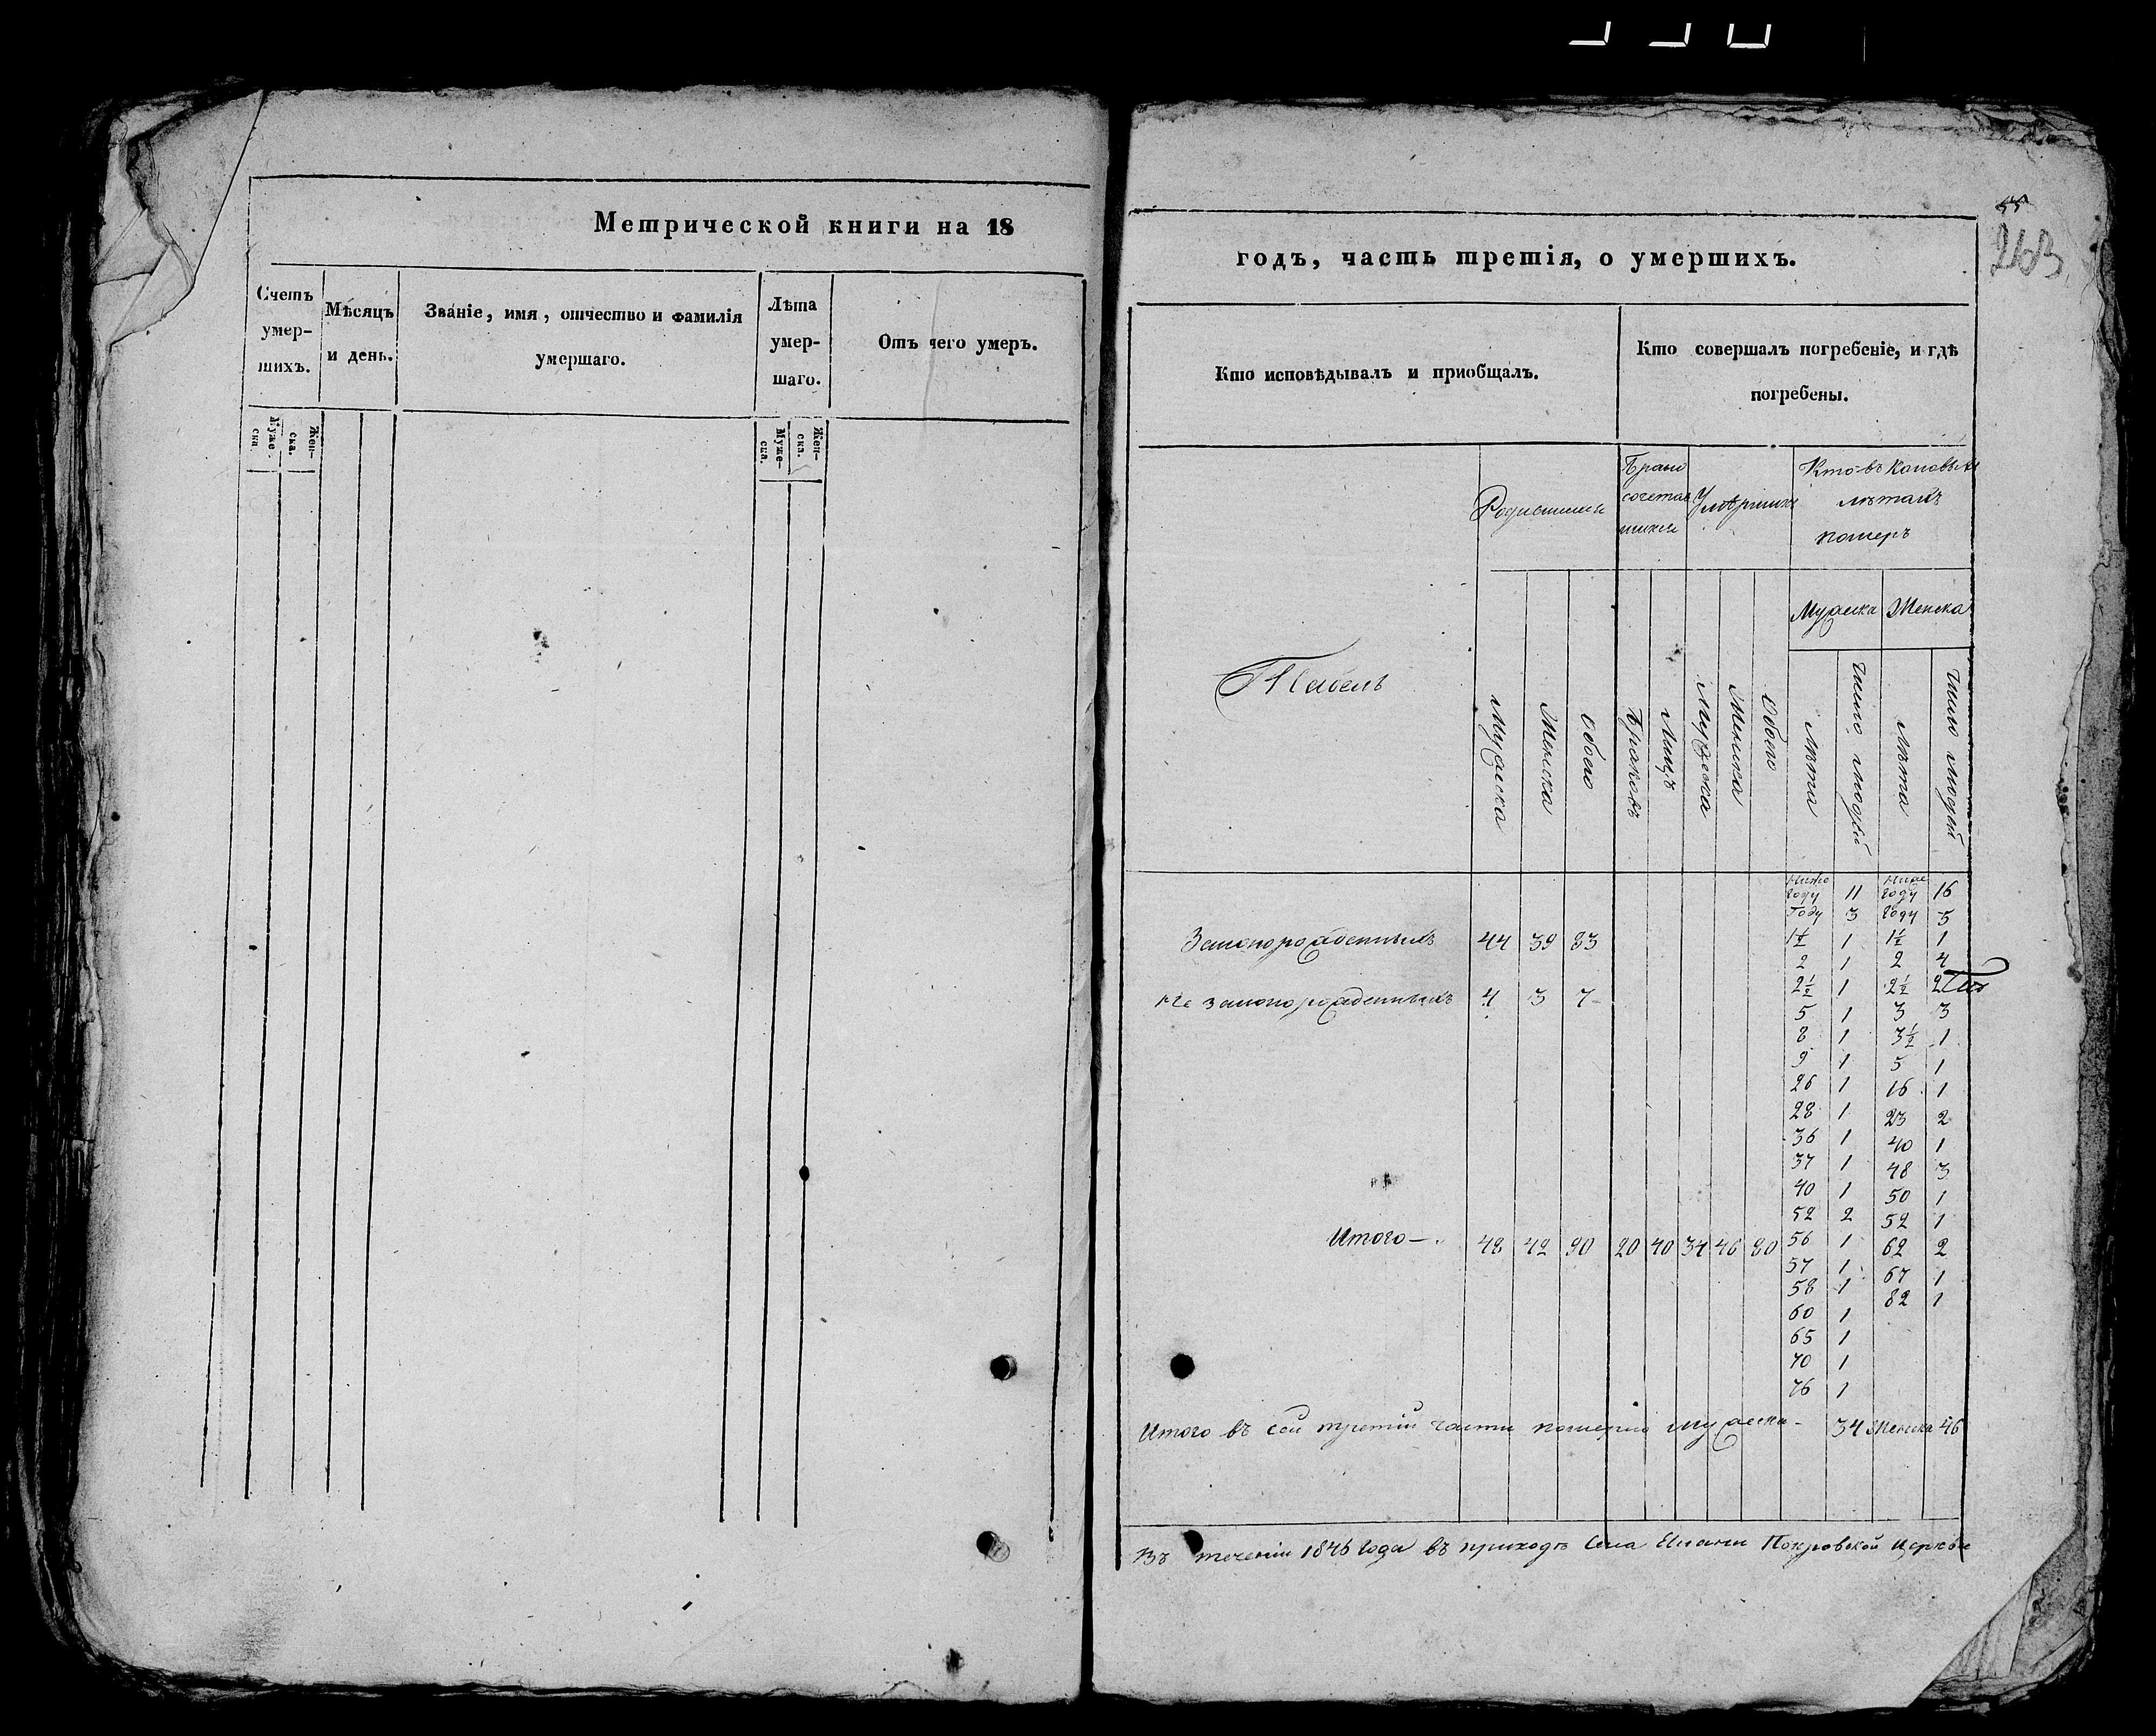 Метрической книги на 18
Счетъ умер-шихъ.
Муже-ска.
Жен-ска.
Мѣсяцъ и день.
Званіе, имя, отчество и фамилія умершаго.
Лѣта умер-шаго.
Муже-ска.
Жен-ска.
Отъ чего умеръ.
годъ, часть третія, о умершихъ.
55
263
Кто исповѣдывалъ и приобщалъ.
Кто совершалъ погребеніе, и гдѣ
погребены.
Табель
Родившихся
Бракосочетавшихся
Умершихъ
Кто въ каковыхъ
лѣтахъ
померъ
Мужеска Женска
Мужеска
Женска
Обоего
Браковъ
Лицъ
Мужеска
Женска
Обоего
Лѣта
Число людей
Лѣта
Число людей
Ниже году 11 Ниже году 16
Году 3 Году 5
Законорожденныхъ 44 39 83
1½ 1 1½ 1
2 1 2 4
Не законорожденныхъ 4 3 7
2½ 1 2½ 2
5 1 3 3
8 1 3½ 1
9 1 5 1
26 1 16 1
28 1 23 2
36 1 40 1
37 1 48 3
40 1 50 1
52 2 52 1
Итого 48 42 90 20 40 34 46 80
56 1 62 2
57 1 67 1
58 1 82 1
60 1
65 1
70 1
76 1
Итого въ сей третій части померло мужеска 34 Женска 46
Въ теченіи 1846 года въ приходѣ Села Елани Покровской Церкви